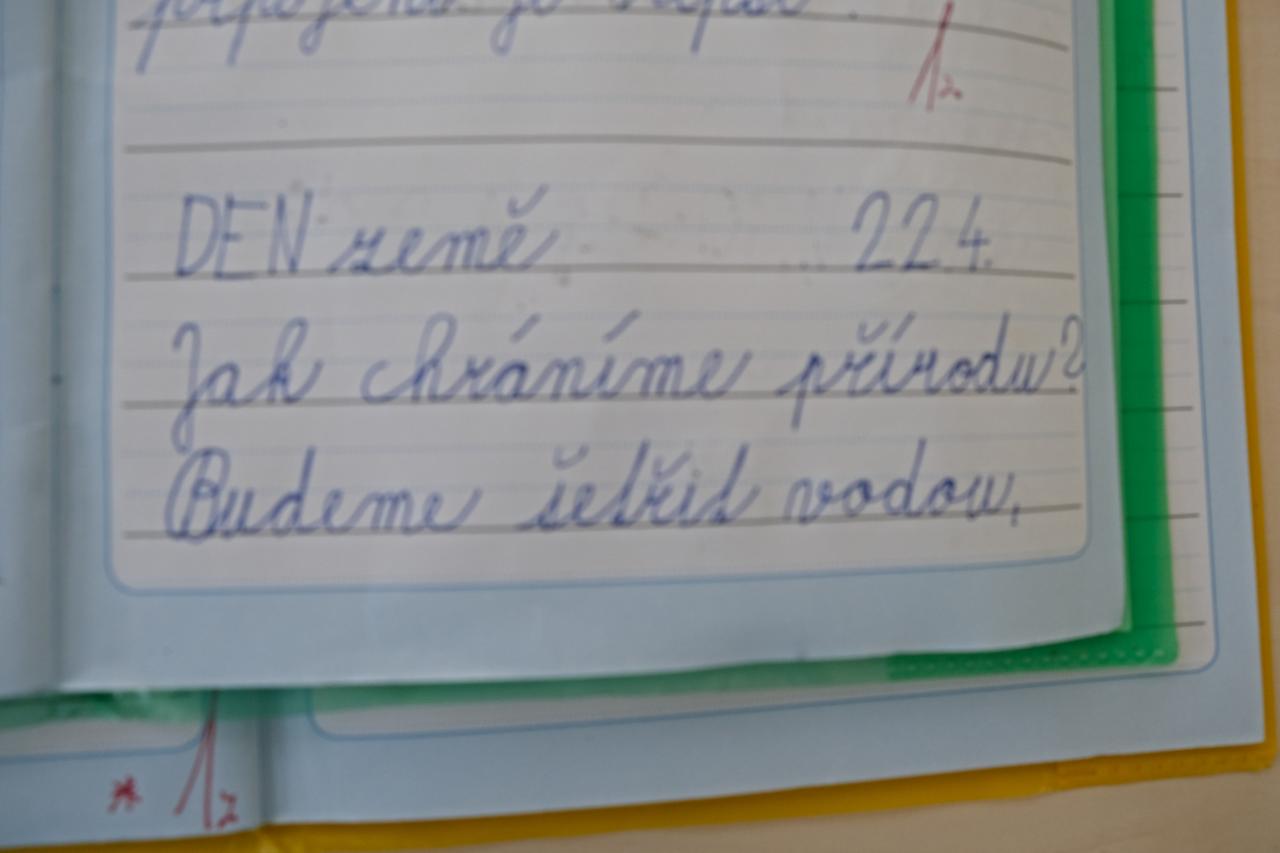 DEN země 22.4.
Jak chráníme přírodu?
Budeme šetřit vodou,